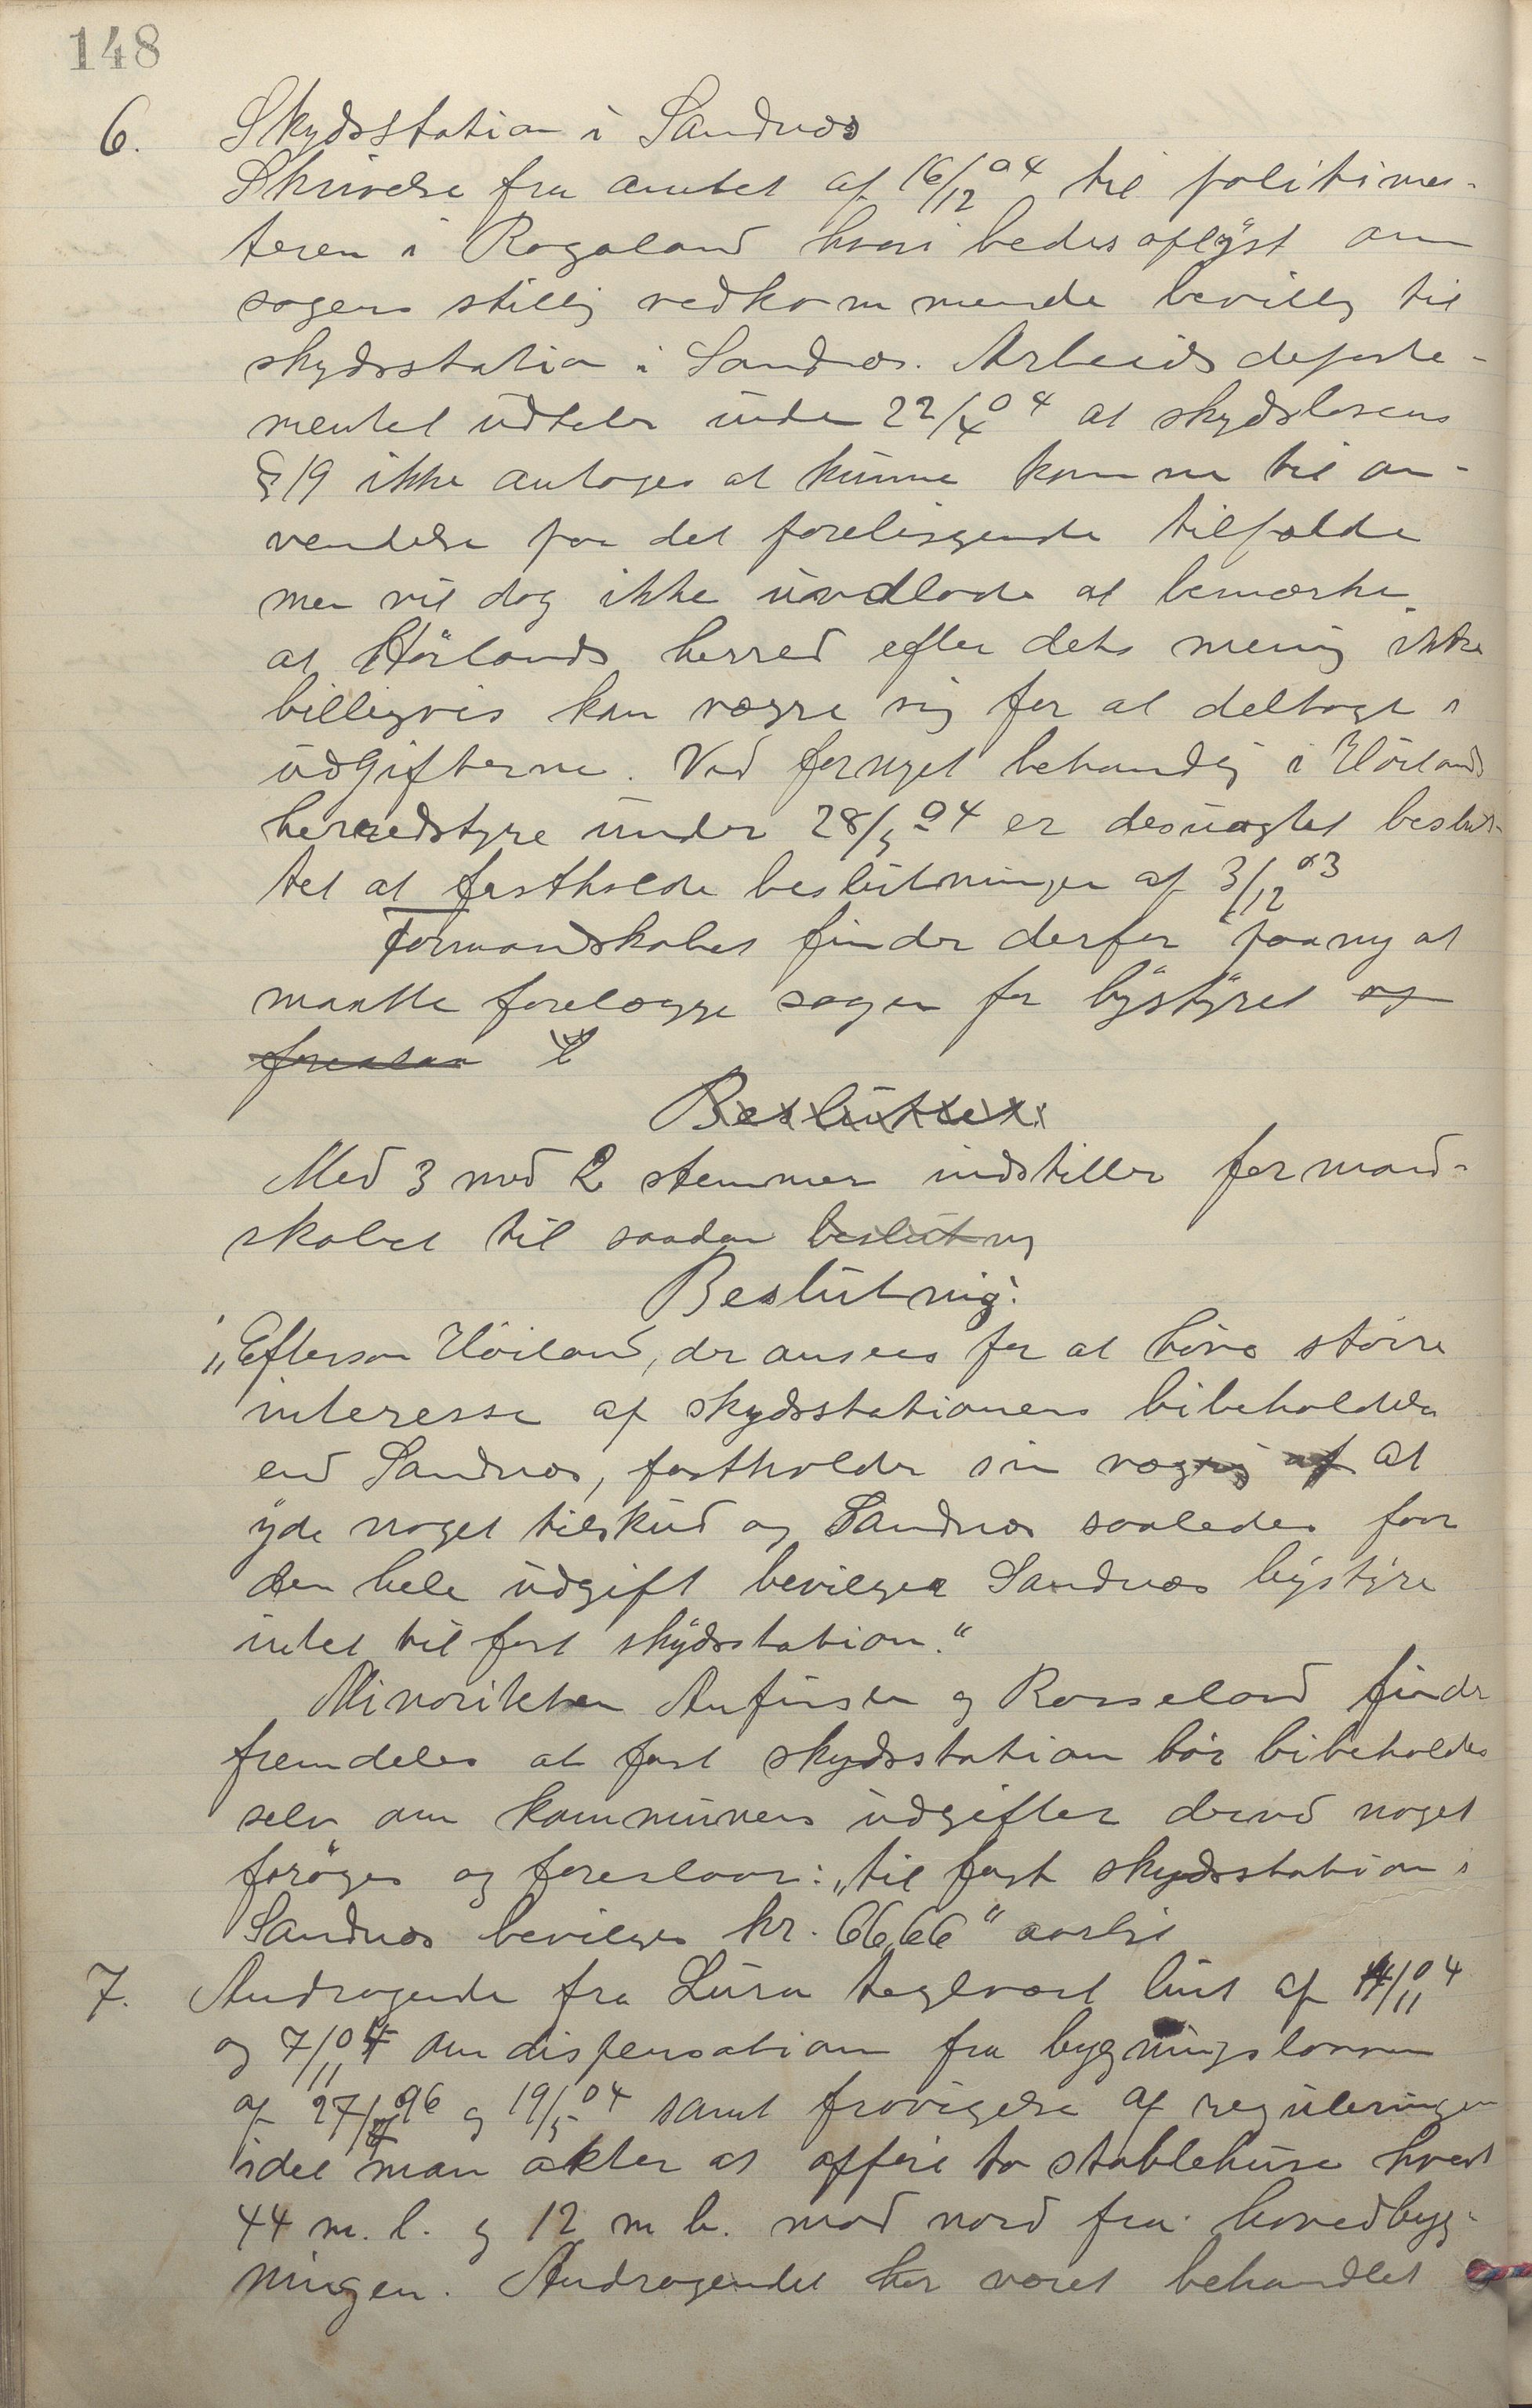 148
6. Skydsstation i Sandnæs
Skrivelse fra amtet af 16/12 04 til politimes-
teren i Rogaland hvori bedes oplyst om
sagens stillg vedkommende bevillg til
skydsstation i Sandnæs. Arbeidsdeparte-
mentet udtaler under 22/4 04 at skydslovens
§ 19 ikke antages at kunne komme til an-
vendelse paa det foreliggende tilfælde
men vil dog ikke undlade at bemærke
at Höilands herred efter dets mening ikke
billigvis kan vægre sig for at deltage i
udgifterne. Ved fornyet behandlg i Höilands
herredstyre under 28/5 04 er desuagtet beslut-
tet at fastholde beslutningen af 3/12 03
Formandskabet finder derfor paany at
maatte forelægge sagen for bystyret og
foreslaa
Besluttet:
Med 3 mod 2 stemmer indstiller formand-
skabet til saadan beslutng
Beslutnig:
„Eftersom Höiland, der ansees for at have större
interesse af skydsstationens bibeholdelse
end Sandnæs, fastholder sin vægrig af at
yde noget tilskud og Sandnæs saaledes faar
den hele udgift bevilger Sandnæs bystyre
intet til fast skydsstation."
Minoriteten Anfinsen og Rosseland finder
fremdeles at fast skydsstation bör bibeholdes
selv om kommunens udgifter derved noget
foröges og foreslaar: „til fast skydsstation i
Sandnæs bevilges kr. 66,66" aarligt
7. Andragende fra Lura teglværk limt af 4/11 04
og 7/11 04 om dispensation fra bygningsloven
af 27/6 96 og 19/5 04 samt fravigelse af reguleringen
idet man akter at opföre to stablehuse hvert
44 m. l. og 12 m b. mod nord fra hovedbyg-
ningen. Andragendet har været behandlet